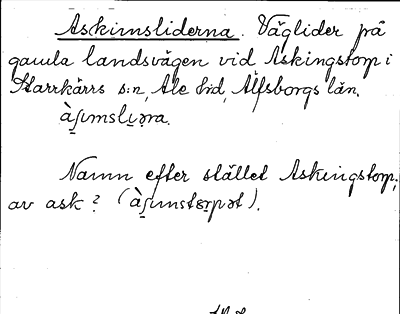 Askimsliderna. Väglider på
gamla landsvägen vid Askingstorp i
Starrkärrs s:n, Ale hd, Älfsborgs län.
Namn efter stället Askingstorp,
av ask?